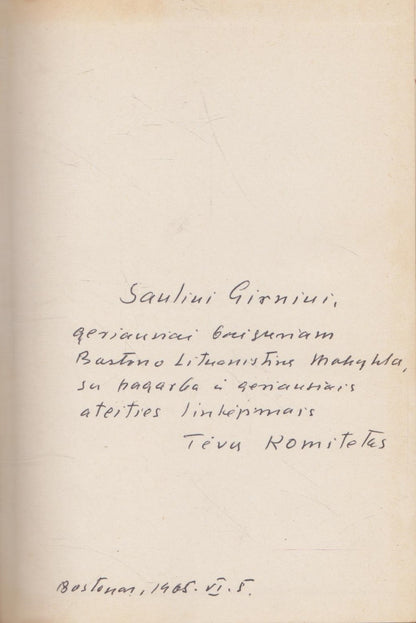 Sauliui Girniui,
geriausiai baigusiam
Bostono Lituanistinę Mokyklą,
su pagarba ir geriausiais
ateities linkėjimais
Tėvų Komitetas
Bostonas, 1965. VI. 5.